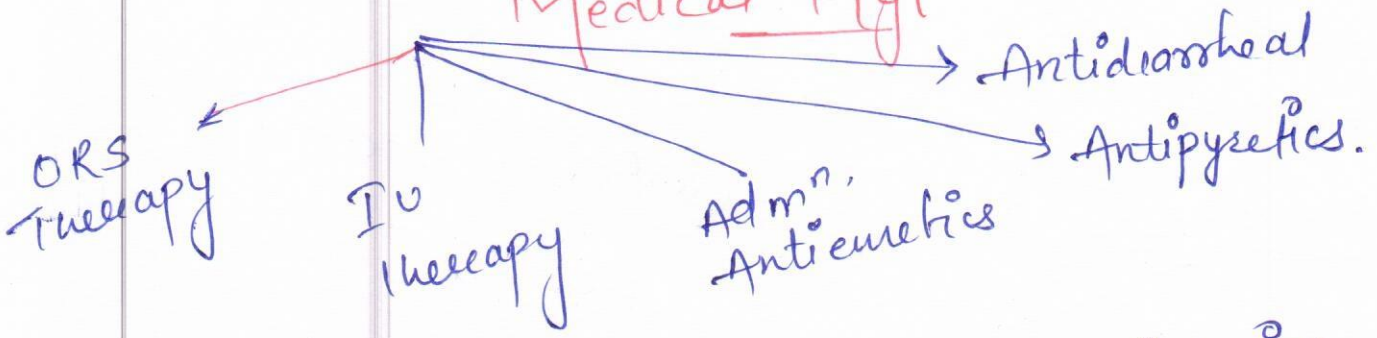 Medical Mgt
Antidiarrheal
Antipyretics.
ORS
Therapy
IV
Therapy
Admn.
Antiemetics